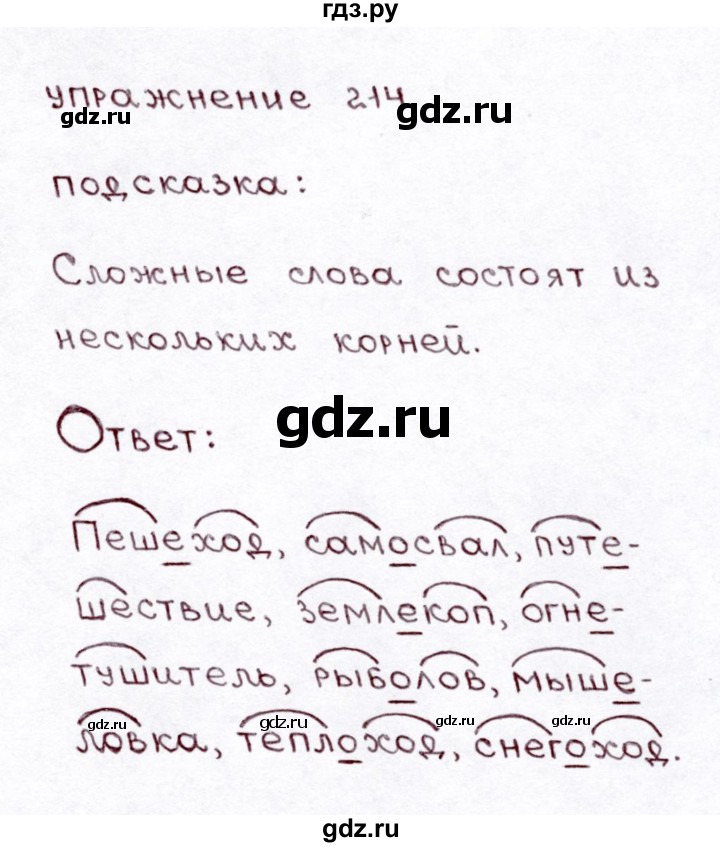 гдз.ру
упражнение 214
gdz.ru
gdz.ru
подсказка:
Сложные слова состоят из
нескольких корней.
gdz.ru
Ответ:
Пешеход, самосвал, путе-
шествие, землекоп, огне-
тушитель, рыболов, мыше-
gdz.ru gdz.ru gdz.ru
ловка, теплоход, снегоход.
gdz.ru